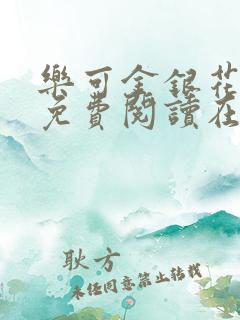 樂可金銀花
免費閱讀在
耿方
未經同意禁止轉載